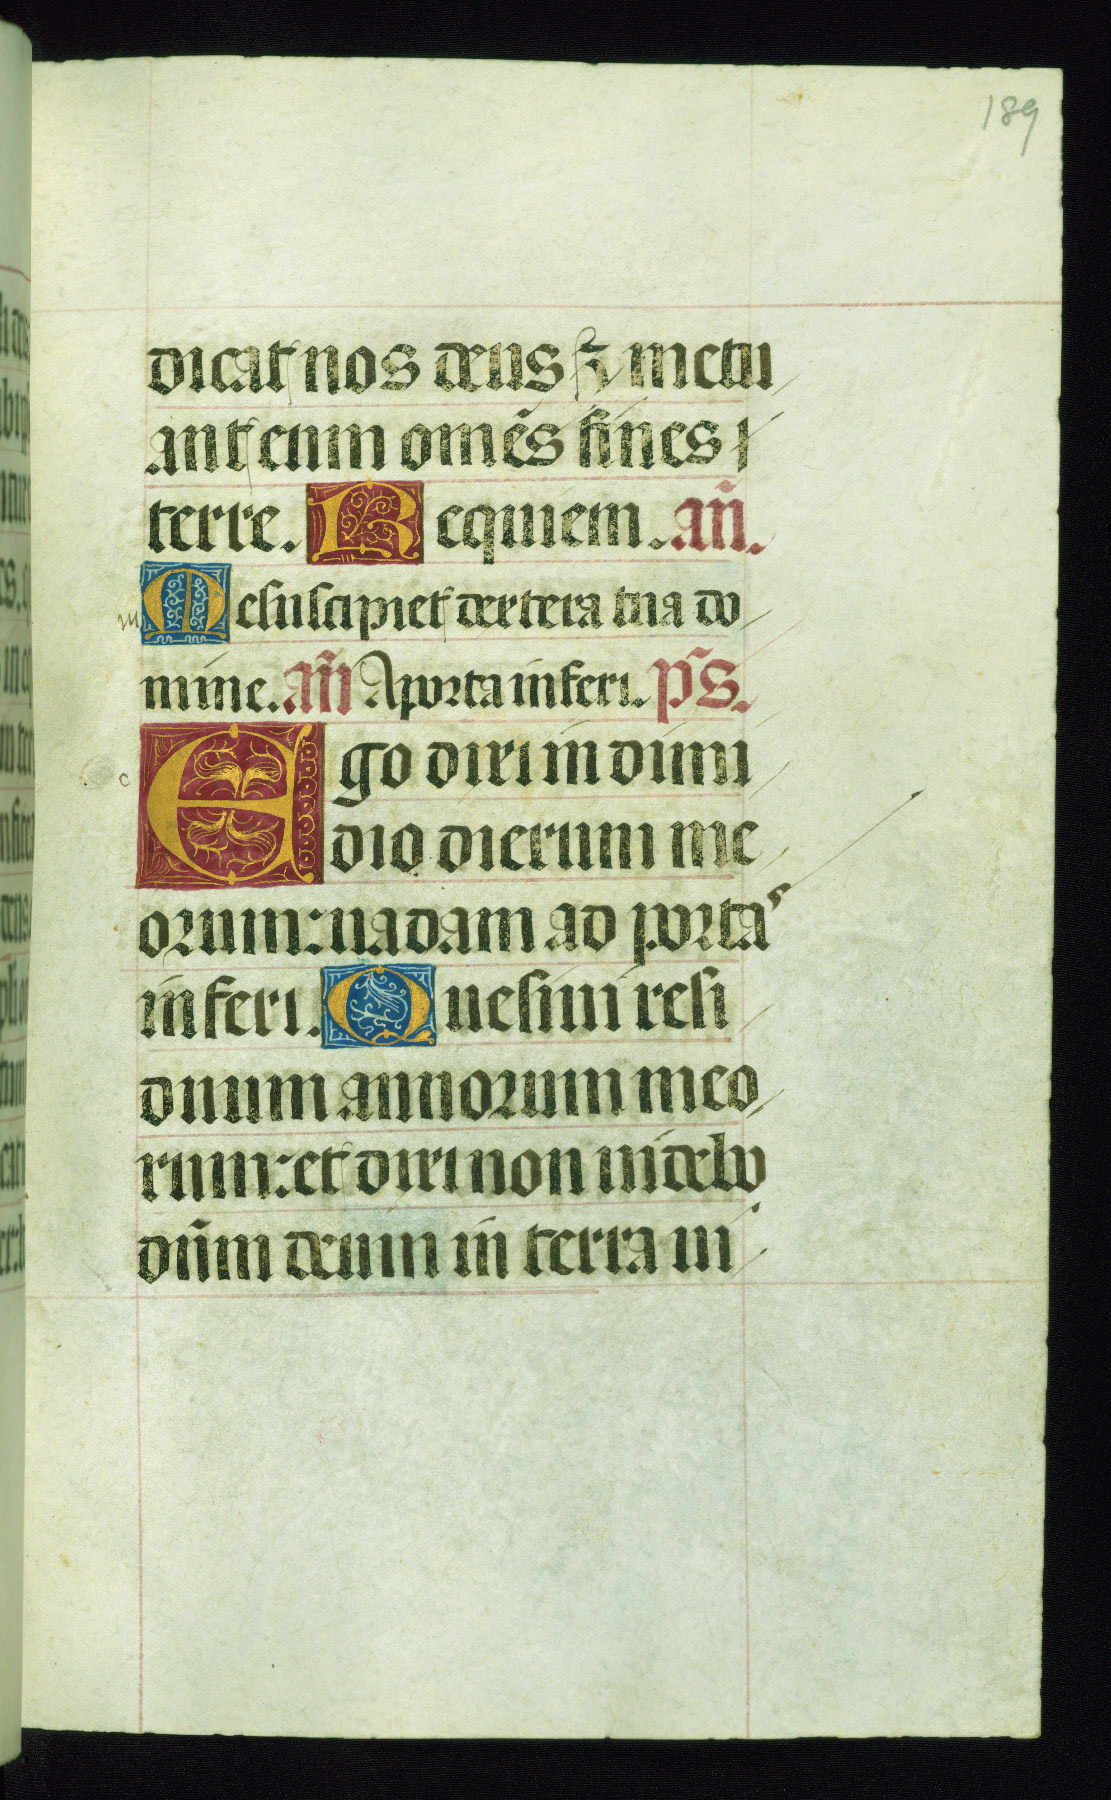 189
dicat nos deus ⁊ metu
ant eum om̄es fines
terre. Requiem. an̄.
m
Me suscipiet dextera tua do
mine. an̄ A porta inferi. ps̄.
e
Ego dixi in dimi
dio dierum me
orum: uadam ad portas
inferi. Quesiui resi
duum annorum meo
rum: et dixi non uidebo
dn̄m deum in terra ui